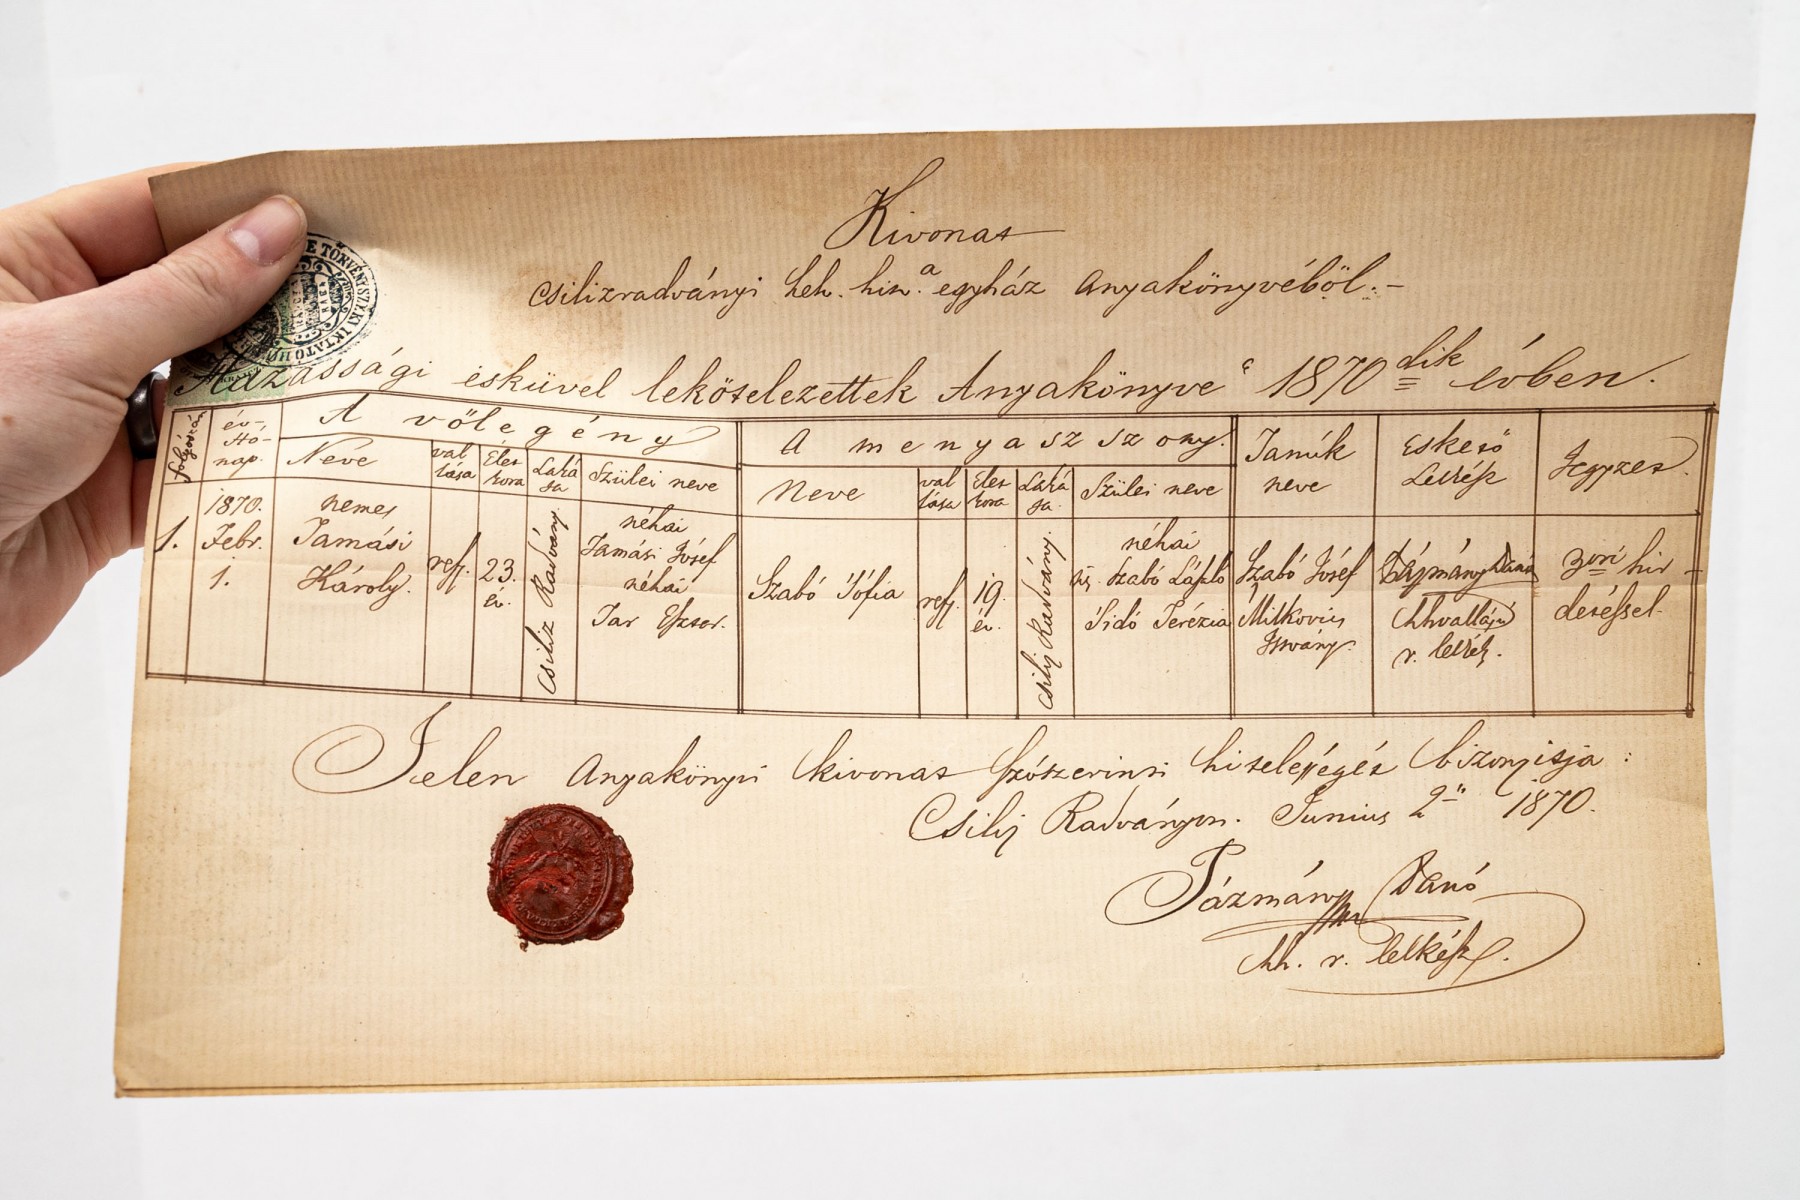 Kivonat
csilizradványi helv. hitv.ª egyház Anyakönyvéből.-
Házassági esküvel leköteleztettek Anyakönyve 1870dik évben.
folyószám
év-, Hó-, nap.
A vőlegény
Neve
val lása
Élet kora
Laká sa
Szülei neve
A menyasszony.
Neve
val lása
Élet kora
Laká sa.
Szülei neve
Tanúk neve
Eskető Lelkész
Jegyzet.
1.
1870. Febr. 1.
nemes
Tamási
Károly.
ref.
23. év.
Csiliz Radvány.
néhai
Tamási József
néhai
Eszter.
Szabó Sófia
ref.
19. év.
Csiliz Radvány.
néhai
Szabó László
Sidó Terézia
Szabó József
Mitkovics
István.
Pázmány Danó
hhvallású
r. lelkész.
3ori hir-
detéssel.
Jelen Anyakönyvi kivonat szószerinti hitelességét bizonyitja:
Csiliz Radványon. Junius 2án 1870.
Pázmány Danó
hh. r. lelkész.
E TÖRVÉNYSZÉKI IKTATÓ HIV